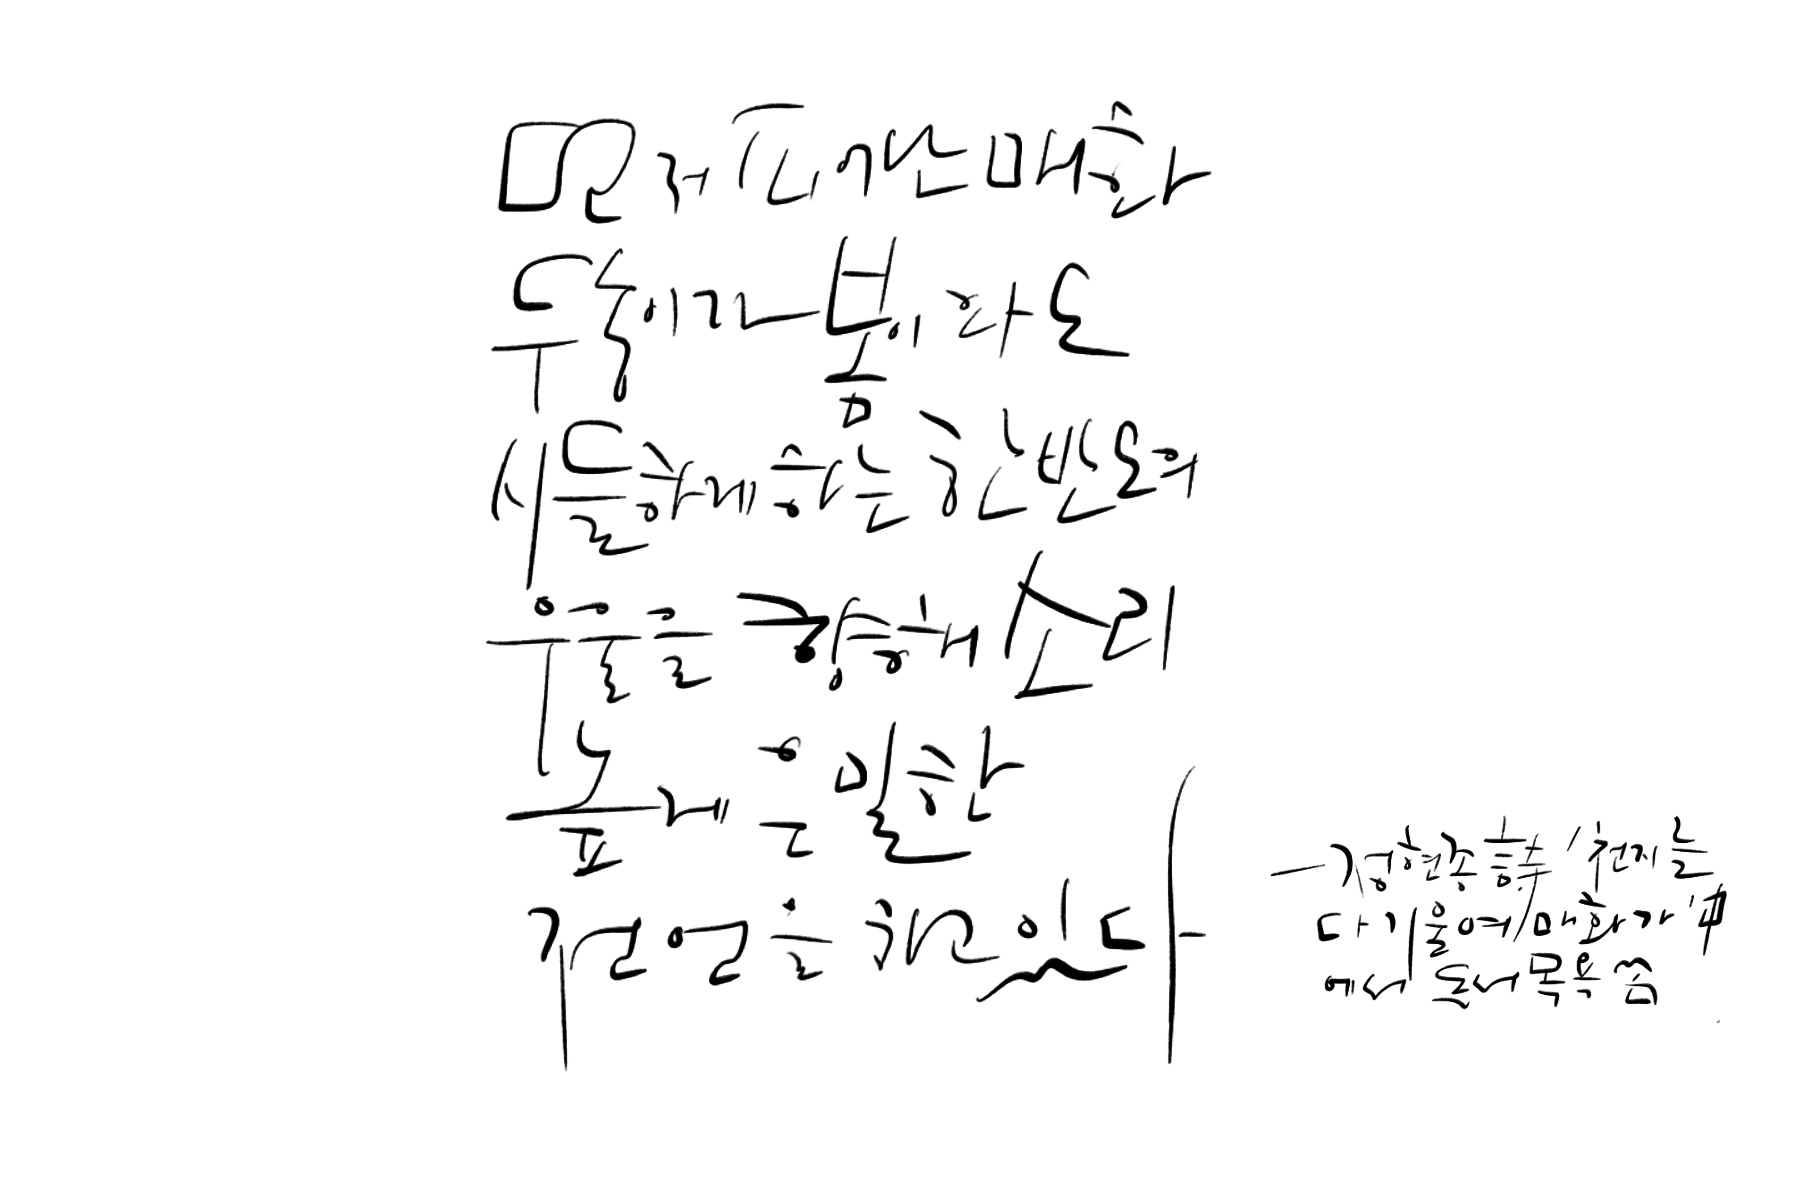 먼저 피어난 매화
두 송이가 봄이라도
시들하게 하는 한반도의
우울을 향해 소리
높게 은밀한
전언을 하고 있다
—정현종 詩 '천지를
다 기울여 매화가' 中
에서 독서목욕 씀